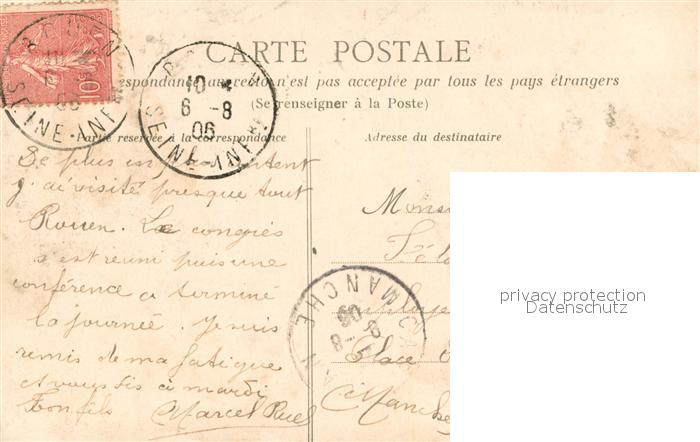 CARTE POSTALE
respondance au recto n'est pas acceptée par tous les pays étrangers
(Se renseigner à la Poste)
Partie reservée à la correspondance
Adresse du destinataire
10
6 -8
06
SEINE-INFRE
SEINE-INF
10c
De plus en plus content
j'ai visité presque tout
Rouen. Le congrès
s'est réuni puis une
conférence a terminé
la journée. Je suis
remis de ma fatigue
et vous dis à mardi
Ton fils Marcel
Mons
Place
Manche
MANCHE
privacy protection
Datenschutz